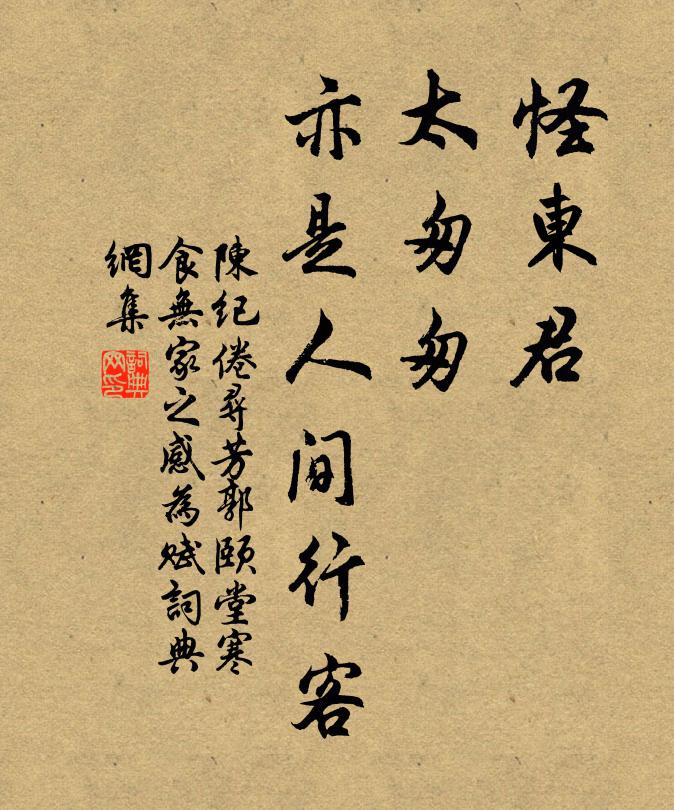 怪東君
太匆匆
亦是人間行客
陳紀倦尋芳郭頤堂寒
食無家之感為賦詞典
網集
詞典
网印